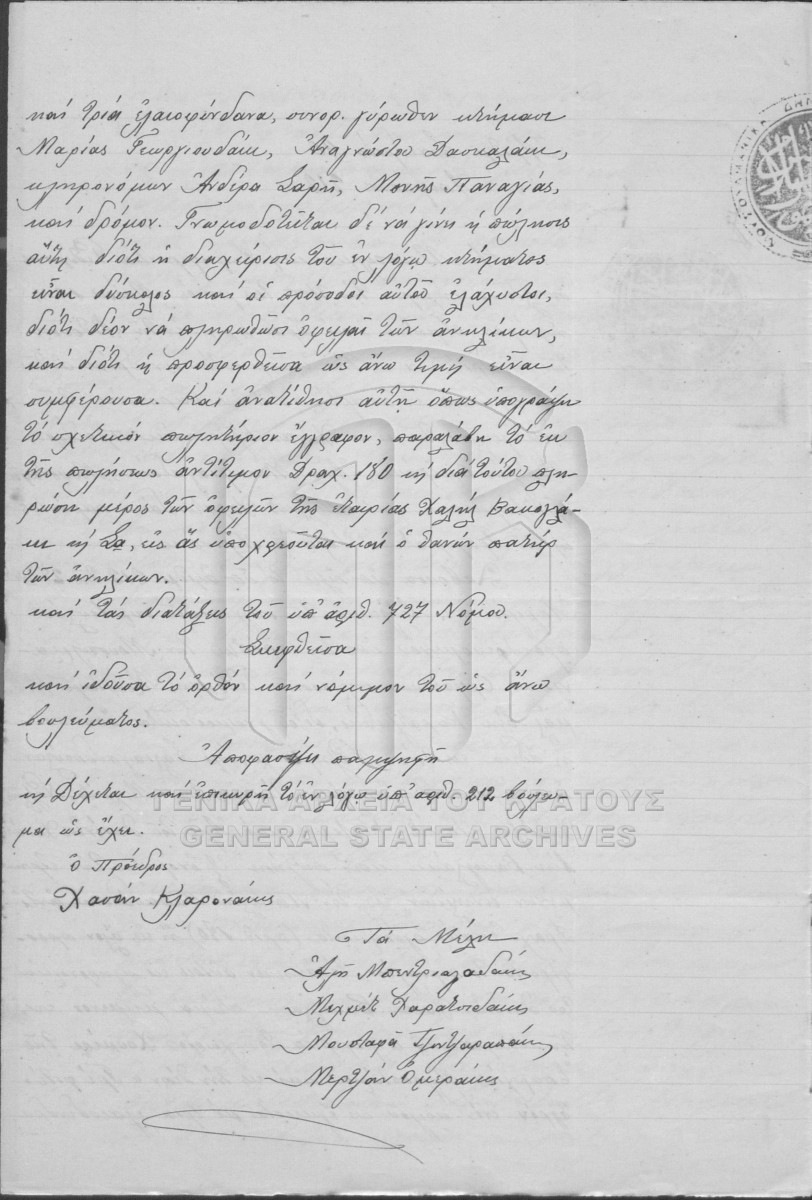 καί τρία ἐλαιοφόνδανα, συνορ. γύρωθεν κτήμασι
Μαρίας Γεωργιουδάκι, Ἀναγνώστου Δασκαλάκι,
κληρονόμων Ἀνδέρα Σαρῆ, Μονῆς Παναγίας,
καί δρόμον. Γνωμοδοτεῖται δέ νά γίνῃ ἡ πώλησις
αὕτη διότι ἡ διαχείρισις τοῦ ἐν λόγῳ κτήματος
εἶναι δύσκολος καί οἱ πρόσοδοι αὐτοῦ ἐλάχισται,
διότι δέον νά πληρωθῶσι ὀφειλαί τῶν ἀνηλίκων,
καί διότι ἡ προσφερθεῖσα ὡς ἄνω τιμή εἶναι
συμφέρουσα. Καί ἀνατίθησι αὐτῇ ὅπως ὑπογράψῃ
τό σχετικόν πωλητήριον ἔγγραφον, παραλάβῃ τό ἐκ
τῆς πωλήσεως ἀντίτιμον Δραχ. 180 κ διά τούτου πλη-
ρώσῃ μέρος τῶν ὀφειλῶν τῆς ἑταιρίας Χαλήλ Βακολά-
κι κ Σα, εἰς ἅς ὑποχρεοῦται καί ὁ θανών πατήρ
τῶν ἀνηλίκων.
καί τάς διατάξεις τοῦ ὑπ' ἀριθ. 727 Νόμου.
Σκεφθεῖσα
καί ἰδοῦσα τό ὀρθόν καί νόμιμον τοῦ ὡς ἄνω
βουλεύματος.
Ἀποφασίζει παμψηφεί
κ Δέχεται καί ἐπικυροῖ τό ἐν λόγῳ ὑπ' ἀριθ. 212 βούλευ-
μα ὡς ἔχει.
ὁ Πρόεδρος
Χασάν Κλαρονάκης
Τά Μέλη
Ἀλῆ Μπεντριαλαδάκης
Μεχμέτ Χαρατσιδάκης
Μουσταφᾶ Τζοντζαραπάκης
Μερτζάν Ὀμεράκης
ΓΕΝΙΚΑ ΑΡΧΕΙΑ ΤΟΥ ΚΡΑΤΟΥΣ
GENERAL STATE ARCHIVES